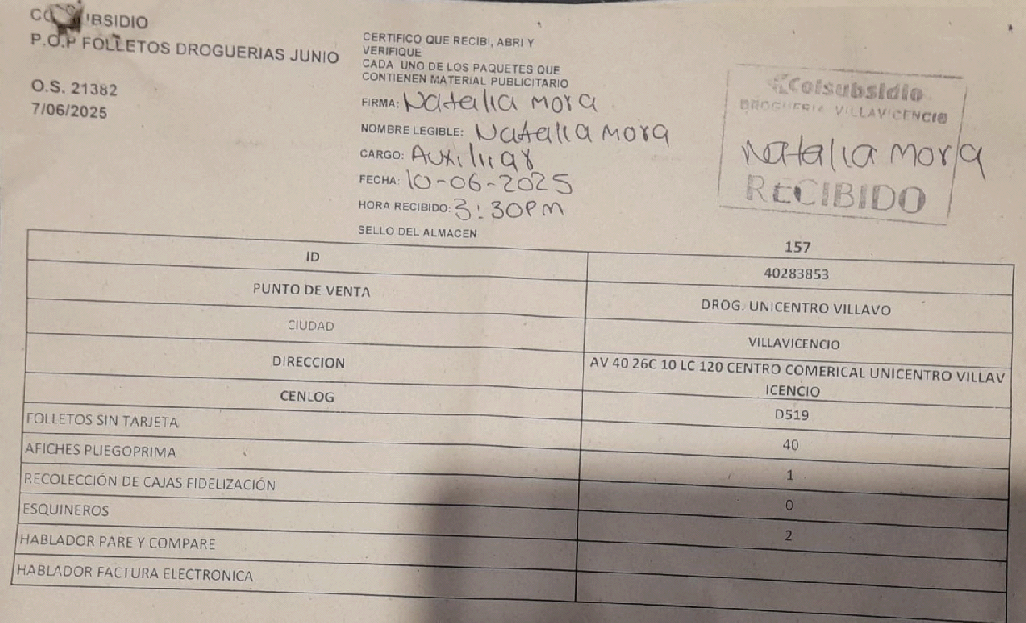 CO UBSIDIO
P.O.P FOLLETOS DROGUERIAS JUNIO
O.S. 21382
7/06/2025
CERTIFICO QUE RECIBI, ABRI Y
VERIFIQUE
CADA UNO DE LOS PAQUETES QUE
CONTIENEN MATERIAL PUBLICITARIO
FIRMA: Natalia mora
NOMBRE LEGIBLE: Natalia mora
CARGO: Auxiliar
FECHA: 10-06-2025
HORA RECIBIDO: 3:30PM
SELLO DEL ALMACEN
Colsubsidio
DROGUERIA VILLAVICENCIO
Natalia mora
RECIBIDO
157
ID 40283853
PUNTO DE VENTA DROG. UNICENTRO VILLAVO
CIUDAD VILLAVICENCIO
DIRECCION AV 40 26C 10 LC 120 CENTRO COMERICAL UNICENTRO VILLAV
ICENCIO
CENLOG D519
FOLLETOS SIN TARJETA 40
AFICHES PLIEGOPRIMA 1
RECOLECCIÓN DE CAJAS FIDELIZACIÓN 0
ESQUINEROS 2
HABLADOR PARE Y COMPARE
HABLADOR FACTURA ELECTRONICA